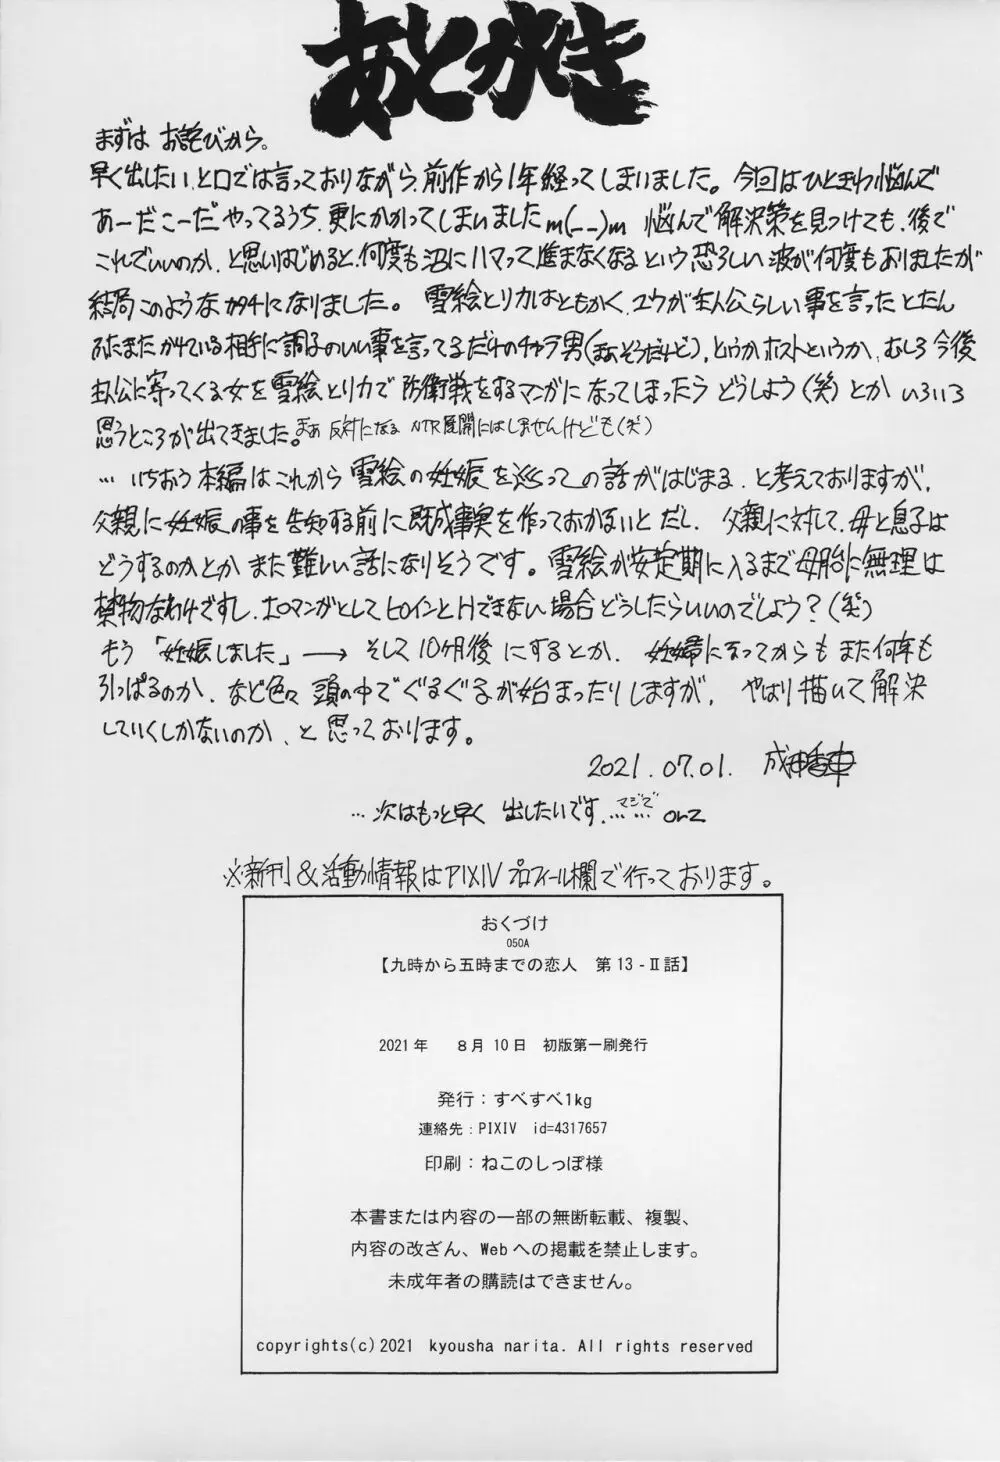 あとがき
まずは お詫びから。
早く出したい、と口では言っておりながら、前作から1年経ってしまいました。今回はひときわ悩んで
あーだこーだ やってるうち、更にかかってしまいましたm(_ _)m 悩んで解決策を見つけても、後で
これでいいのか、と思いはじめると、何度も沼にハマって進まなくなるという恐ろしい波が何度もありましたが
結局このようなカタチになりました。雪絵とリカはともかく、ユウが主人公らしい事を言ったとたん
ふたまたかけている相手に調子のいい事を言ってるだけのチャラ男(まあそうだけど)、というかホストというか、むしろ今後
主人公に寄ってくる女を雪絵とリカで防衛戦をするマンガになってしまったらどうしよう(笑)とか いろいろ
思うところが出てきました。まあ 反対になる NTR展開にはしませんけども(笑)
…いちおう本編はこれから雪絵の妊娠を巡っての話がはじまる、と考えておりますが、
父親に妊娠の事を告知する前に既成事実を作っておかないと だし、父親に対して、母と息子は
どうするのかとか また難しい話になりそうです。雪絵が安定期に入るまで母胎に無理は
禁物なわけですし、エロマンガとしてヒロインとHできない場合どうしたらいいのでしょう?(笑)
もう「妊娠しました」→ そして10ヶ月後 にするとか、妊婦になってからもまた何年も
引っぱるのか、など色々 頭の中でぐるぐるが始まったりしますが、やはり描いて解決
していくしかないのか、と思っております。
2021.07.01. 成田香車
…次はもっと早く 出したいです、マジで…… orz
※新刊&活動情報はPIXIVプロフィール欄で行っております。
おくづけ
050A
【九時から五時までの恋人 第13-Ⅱ話】
2021年 8月10日 初版第一刷発行
発行:すべすべ1kg
連絡先:PIXIV id=4317657
印刷:ねこのしっぽ様
本書または内容の一部の無断転載、複製、
内容の改ざん、Webへの掲載を禁止します。
未成年者の購読はできません。
copyrights(c)2021 kyousha narita. All rights reserved